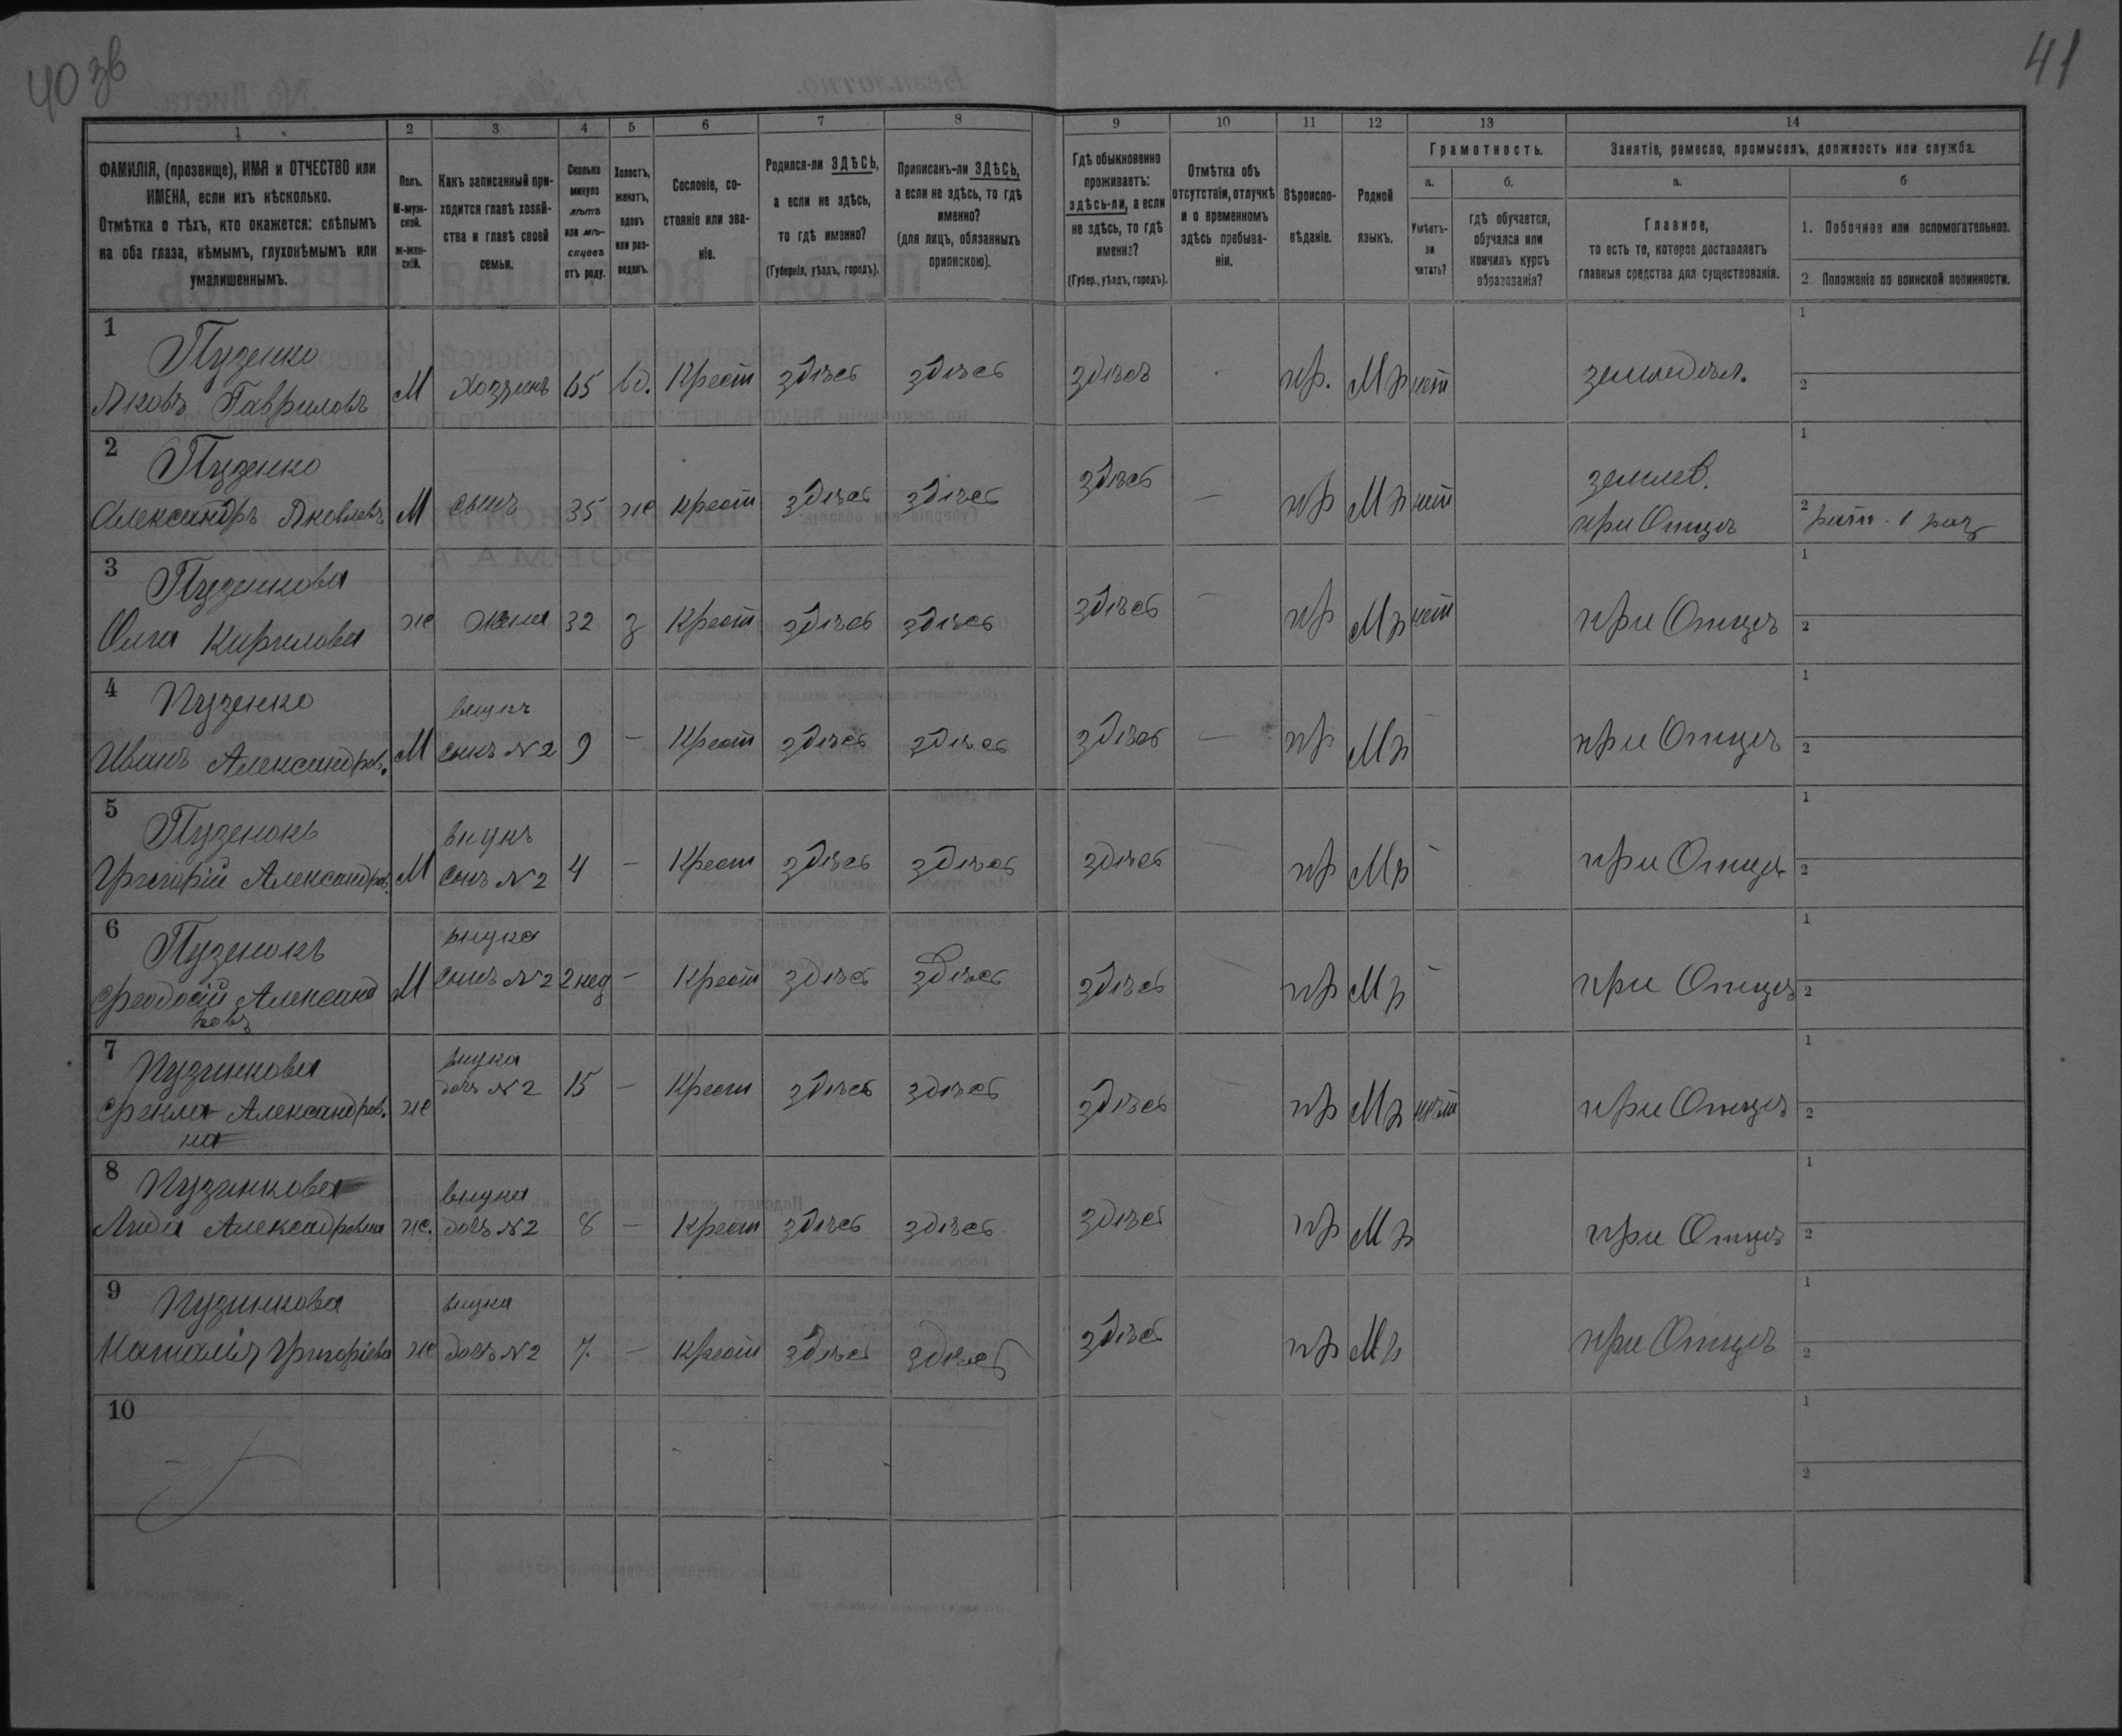 40 зв
41
1
2
3
4
5
6
7
8
9
10
11
12
13
14
ФАМИЛІЯ, (прозвище), ИМЯ и ОТЧЕСТВО или
ИМЕНА, если ихъ нѣсколько.
Отмѣтка о тѣхъ, кто окажется: слѣпымъ
на оба глаза, нѣмымъ, глухонѣмымъ или
умалишеннымъ.
Полъ.
М-муж-
ской.
ж-жен-
скій.
Какъ записанный при-
ходится главѣ хозяй-
ства и главѣ своей
семьи.
Сколько
минуло
лѣтъ
или мѣ-
сяцевъ
отъ роду.
Холостъ,
женатъ,
вдовъ
или раз-
веденъ.
Сословіе, со-
стояніе или зва-
ніе.
Родился-ли ЗДѢСЬ,
а если не здѣсь,
то гдѣ именно?
(Губернія, уѣздъ, городъ).
Приписанъ-ли ЗДѢСЬ,
а если не здѣсь, то гдѣ
именно?
(для лицъ, обязанныхъ
припискою).
Гдѣ обыкновенно
проживаетъ:
здѣсь-ли, а если
не здѣсь, то гдѣ
именно?
(Губер., уѣздъ, городъ).
Отмѣтка объ
отсутствіи, отлучкѣ
и о временномъ
здѣсь пребыва-
ніи.
Вѣроиспо-
вѣданіе.
Родной
языкъ.
Грамотность.
а.
Умѣетъ-
ли
читать?
б.
гдѣ обучается,
обучался или
кончилъ курсъ
образованія?
Занятіе, ремесло, промыселъ, должность или служба.
а.
Главное,
то есть то, которое доставляетъ
главныя средства для существованія.
б
1. Побочное или вспомогательное.
2. Положеніе по воинской повинности.
1
Пузенко
Яковъ Гавриловъ М Хозяинъ 65 вд. Крест здѣсь здѣсь здѣсь пр. Мр нет земледѣл.
1
2
2
Пузенко
Александръ Яковлевъ М сынъ 35 ж крест здѣсь здѣсь здѣсь — пр Мр нет землед.
при Отцѣ
1
2 ратн. 1 раз
3
Пузенкова
Олга Кирилова ж Жена 32 з Крест здѣсь здѣсь здѣсь — пр Мр нет при Отцѣ
1
2
4
Пузенко
внукъ
Иванъ Александров. М сынъ №2 9 — Крест здѣсь здѣсь здѣсь — пр Мр при Отцѣ
1
2
5
Пузенокъ
внукъ
Григорій Александров. М Сынъ №2 4 — Крест здѣсь здѣсь здѣсь пр Мр — при Отцѣ
1
2
6
Пузенокъ
внука
Феодосій Александ
ровъ
М сынъ №2 2 нед — Крест здѣсь здѣсь здѣсь пр Мр — при Отцѣ
1
2
7
Пузинкова
внука
Фекла Александров.
на
ж дочь №2 15 — Крест здѣсь здѣсь здѣсь пр Мр нѣт при Отцѣ
1
2
8
Пузинкова
внука
Лида Алексадровна ж. дочь №2 8 — Крест здѣсь здѣсь здѣсь пр Мр при Отцѣ
1
2
9
Пузинкова
внука
Наталія Григоріева ж дочь №2 7. — Крест здѣсь здѣсь здѣсь пр Мр при Отцѣ
1
2
10
1
2